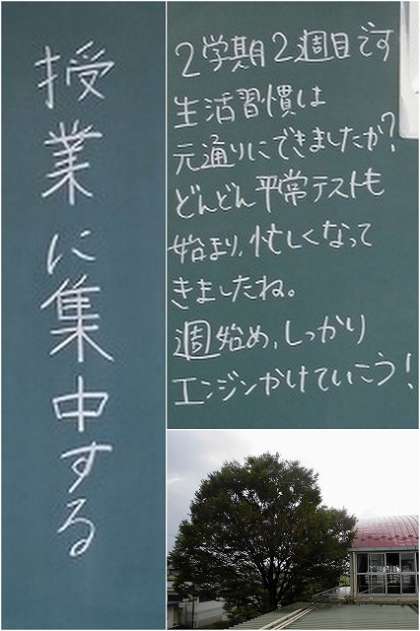 授業に集中する
2学期2週目です
生活習慣は
元通りにできましたか?
どんどん平常テストも
始まり、忙しくなって
きましたね。
週始め、しっかり
エンジンかけていこう!